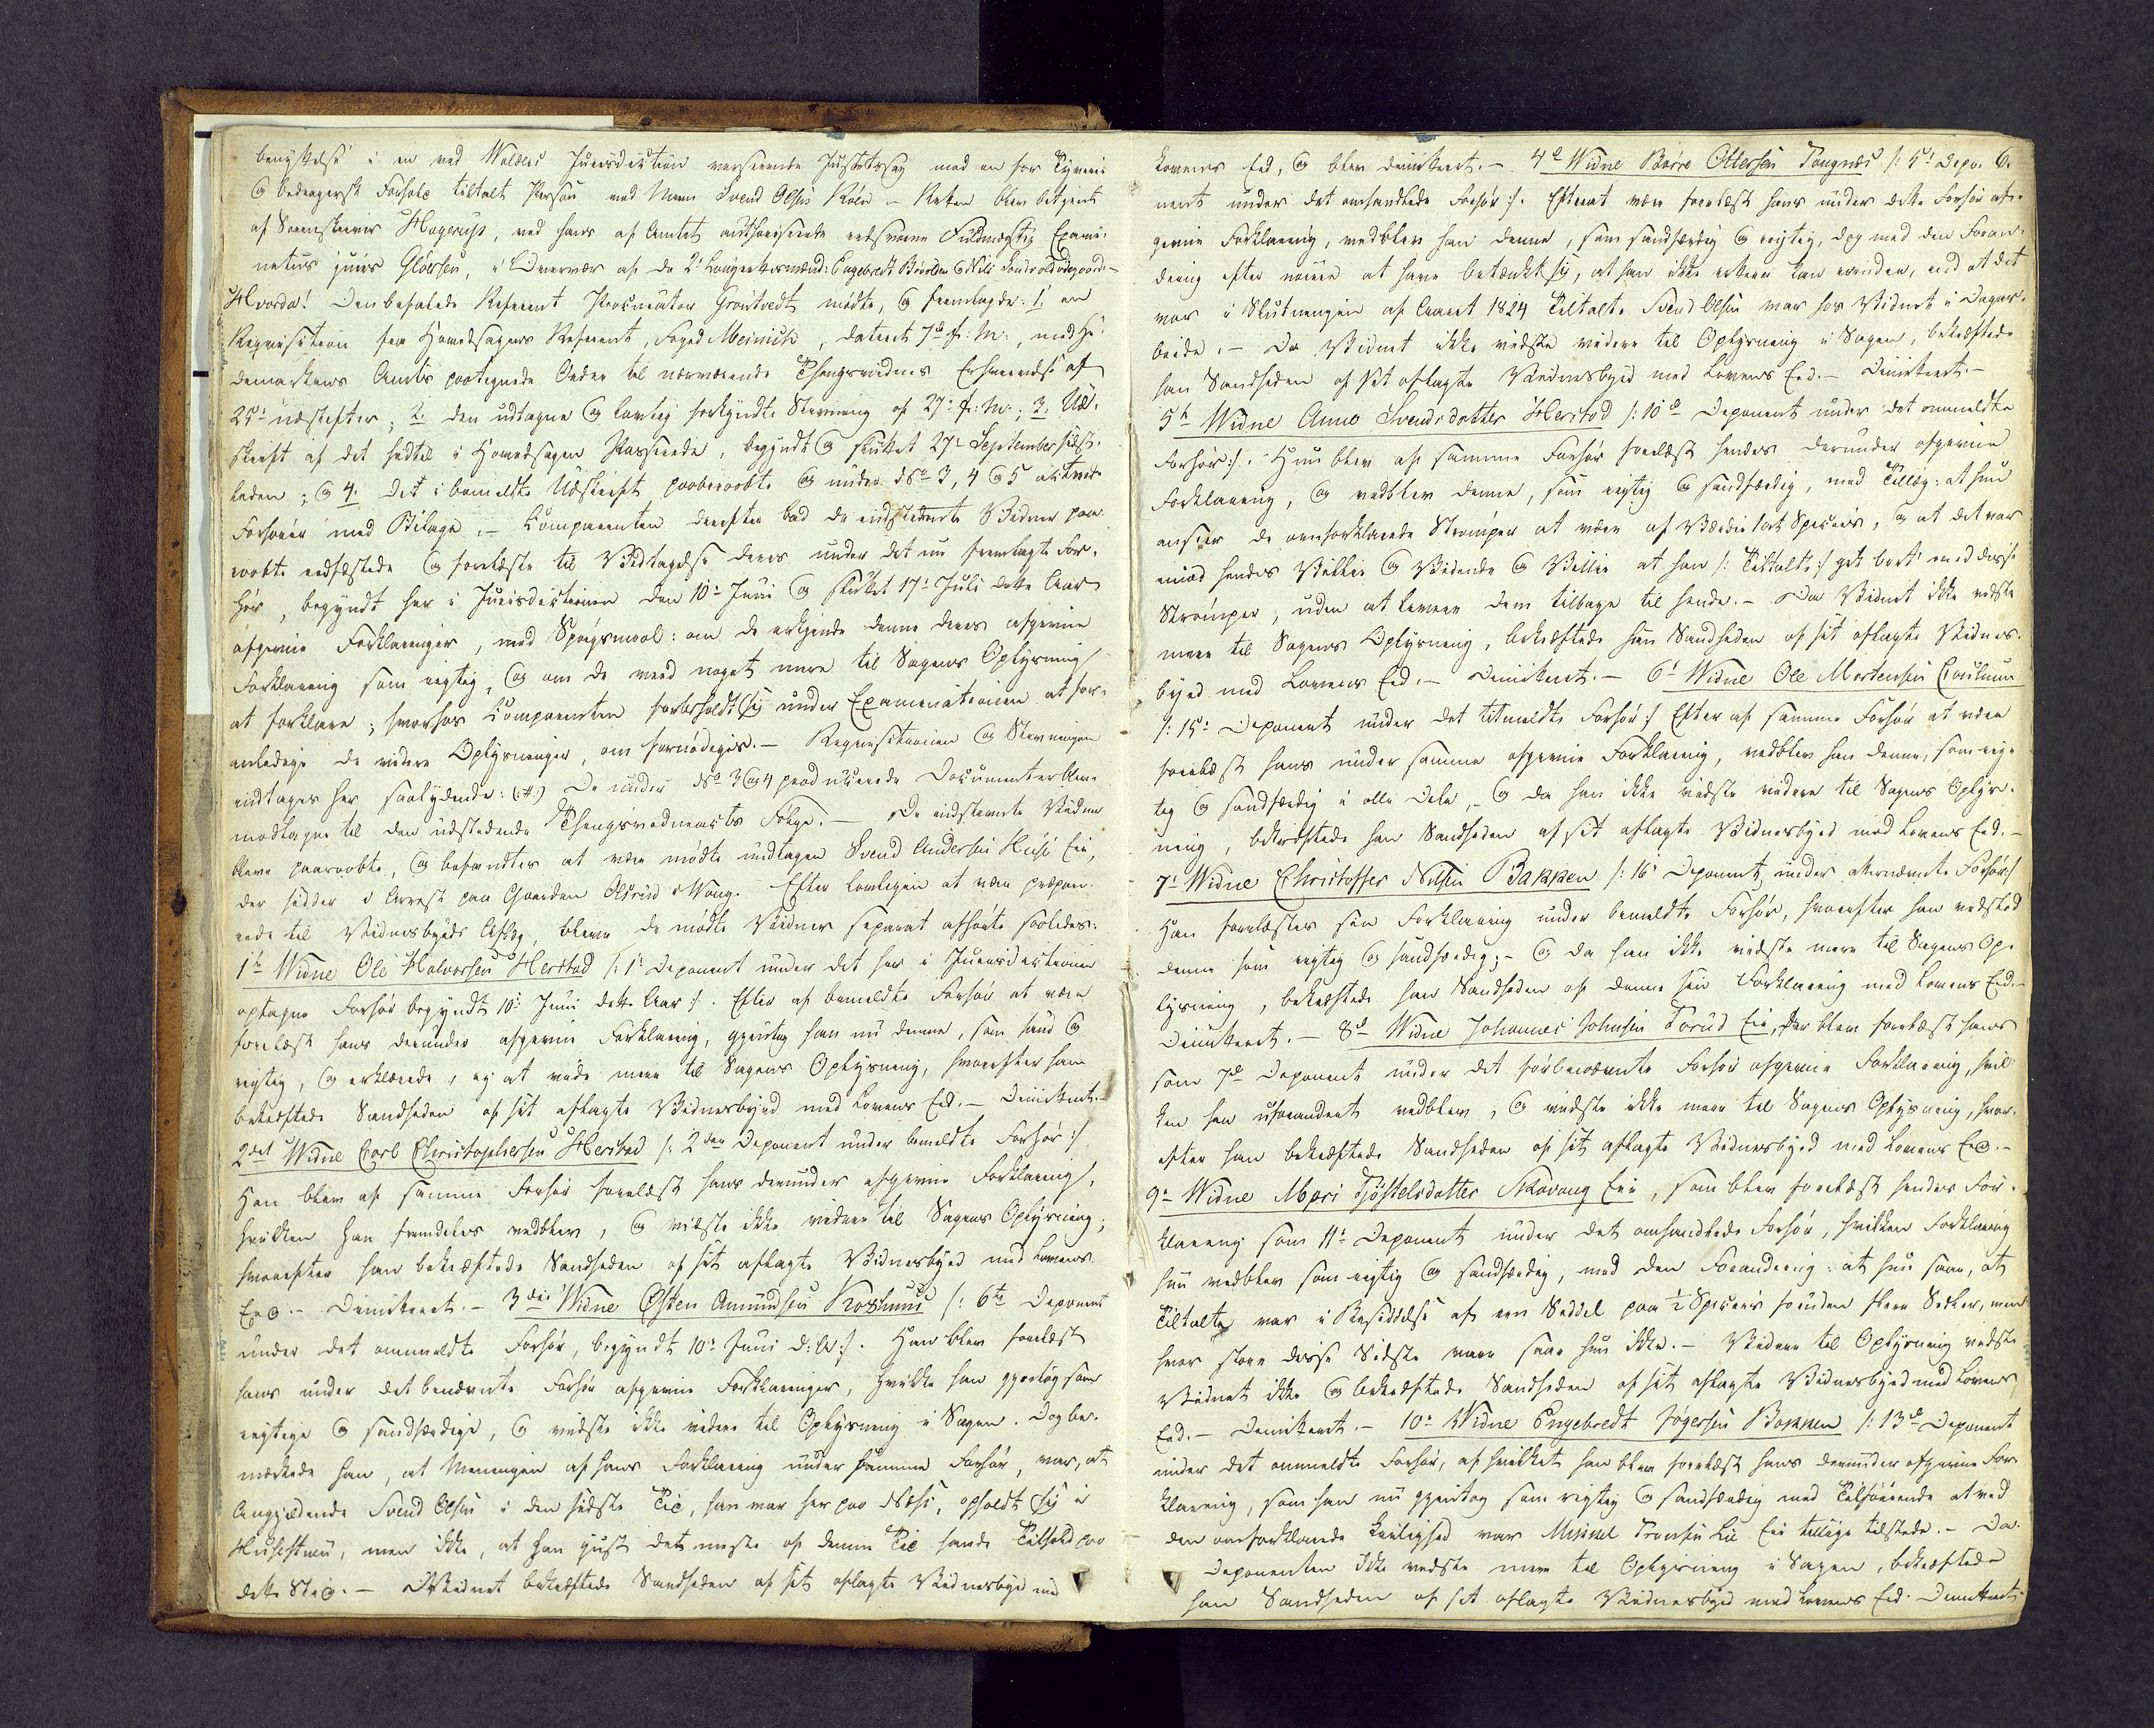 benyttelse i en ved Walders Jurisdiction værserende Justitssag mod en for Tyverie
og bedragersk Forhold tiltalt Person ved Navn Svend Olsen Røln – Retten blev betjent
af Sorenskriver Hagerup, ved hans af Amtet authoriserede eedsvorne Fuldmægtig Exami-
natus juris Gløersen, i Overvær af de 2de Laugrettesmænd: Engebredt
Hvorda! Den befalede Referent Procurator Grøntvedt mødte, og fremlagde: 1. en
Reqvisition fra Hovedsagens Referent, Foged Meinich, dateret 7de f: M:, med He-
demarkens Amts paategnede Ordre til nærværende Thingsvidnes Erhvervelse af
25de næstefter; 2. den udtagne og lovlig forkyndte Stevning af 27de f: M:; 3. Ud-
skrift af det hidtil i Hovedsagen Passerede, begyndt og sluttet 27de September sidst-
leden; og 4. Det i bemeldte Udskrift paaberaabte og under No 3, 4 og 5 acterede
Forhører med Bilage. – Comparenten derefter bad de indstevnte Vidner paa-
raabte eedfæstede og forelæste til Vedtagelse deres under det nu fremlagte For-
hør, begyndt her i Jurisdictionen den 10de Juni og sluttet 17de Juli dette Aar
afgivne Forklaringer, med Spørgsmaal: om de erkjende denne deres afgivne
Forklaring som rigtig, og om de veed noget mere til Sagens Oplysning
at forklare; hvorhos Comparenten forbeholdt sig under Examinationen at for-
anledige de videre Oplysninger, om fornødiges. – Reqvisitionen og Stevningen
indtages her saalydende: (:#:) De under No 3 og 4 producerede Documenter blev
modtagne til den udstedende Thingsvidneacts Følge. – De indstevnte Vidner
bleve paaraabte, og befandtes at være mødte undtagen Svend Andersen Huse Eie,
der sidder i Arrest paa Gaarden Olsrud i Vang. Efter lovligen at være præpare-
rede til Vidnesbyrds Aflæg, bleve de mødte Vidner separat afhørte saaledes:
1te Widne Ole Halvorsen Herstad /: 1te Deponent under det her i Jurisdictionen
optagne Forhør begyndt 10de Juni dette Aar :/. Efter af bemeldte Forhør at være
forelæst hans derunder afgivne Forklaring, gjentog han nu denne, som sand og
rigtig, og erklærede, ej at vide mere til Sagens Oplysning, hvorefter han
bekræftede Sandheden af sit aflagte Vidnesbyrd med Lovens Eed. – Dimitteret. –
2det Widne Carl Christophersen Herstad /: 2den Deponent under bemeldte Forhør :/
Han blev af samme Forhør forelæst hans derunder afgivne Forklaring,
hvilken han fremdeles vedblev, og vidste ikke videre til Sagens Oplysning;
hvorefter han bekræftede Sandheden af sit aflagte Vidnesbyrd med Lovens
Eed. – Dimitteret. – 3die Widne Østen Amundsen Korshuus /: 6te Deponent
under det ommeldte Forhør, begyndt 10de Juni d: A: :/. Han blev forelæst
hans under det benævnte Forhør afgivne Forklaringer, hvilke han gjentog som
rigtige og sandfærdige, og vidste ikke videre til Oplysning i Sagen. Dog be-
mærkede han, at Meningen af hans Forklaring under samme Forhør, var, at
Angjeldende Svend Olsen i den sidste Tid, han var her paa Næss, opholdt sig i
Husestuen, men ikke, at han just det meste af denne Tid havde Tilhold paa
dette Sted. – Vidnet bekræftede Sandheden af sit aflagte Vidnesbyrd med
6.
Lovens Eed, og blev dimitteret. – 4de Widne Børre Ottersen Tangnæs /: 5te Depo-
nent under det omhandlede Forhør :/. Efterat være forelæst hans under dette Forhør af-
givne Forklaring, vedblev han denne, som sandfærdig og rigtig, dog med den Foran-
dring efter nøiere at have betænkt sig, at han ikke erkere kan erindre, end at det
var i Slutningen af Aaret 1824 Tiltalte Svend Olsen var hos Vidnet i Dagar-
beide. – Da Vidnet ikke vidste videre til Oplysning i Sagen, bekræftede
han Sandheden af sit aflagte Vidnesbyrd med Lovens Eed. – Dimitteret. –
5te Widne Anne Svendsdatter Herstad /: 10de Deponent under det ommeldte
Forhør :/. Hun blev af samme Forhør forelæst hendes derunder afgivne
Forklaring, og vedblev denne, som rigtig og sandfærdig, med Tillæg: at hun
ansier de omforklarede Strømper at være af Værdie Specier, og at det var
imod hendes Vidende og Villie at han /: Tiltalte :/ gik bort med disse
Strømper, uden at levere dem tilbage til hende. – Da Vidnet ikke vidste
mere til Sagens Oplysning, bekræftede hun Sandheden af sit aflagte Vidnes-
byrd med Lovens Eed. – Dimitteret. – 6te Widne Ole Mortensen
/: 15de Deponent under det titmeldte Forhør :/ Efter af samme Forhør at være
forelæst hans under samme afgivne Forklaring, vedblev han denne, som rig-
tig og sandfærdig i alle Dele, – og da han ikke vidste videre til Sagens Oplys-
ning, bekræftede han Sandheden af sit aflagte Vidnesbyrd med Lovens Eed. –
7de Widne Christoffer Nilsen Bakken /: 16de Deponent under oftenævnte Forhør :/
Han forelæstes sin Forklaring under bemeldte Forhør, hvorefter han vedstod
denne som rigtig og sandfærdig; – og da han ikke vidste mere til Sagens Op-
lysning, bekræftede han Sandheden af denne sin Forklaring med Lovens Eed. –
Dimitteret. – 8de Widne Johannes Johnsen Torud Eie, der blev forelæst hans
som 7de Deponent under det førbenævnte Forhør afgivne Forklaring, hvil-
ken han uforandret vedblev, og vidste ikke mere til Sagens Oplysning, hvor-
efter han bekræftede Sandheden af sit aflagte Vidnesbyrd med Lovens Eed. –
9de Widne Mari Tjøstelsdatter Skavang Eie, som blev forelæst hendes For-
klaring som 11te Deponent under det omhandlede Forhør, hvilken Forklaring
hun vedblev som rigtig og sandfærdig, med den Forandring: at hun saae, at
Tiltalte var i Besiddelse af een Seddel paa ½ Species foruden flere Sedler, men
hvor store disse Sidste vare saae hun ikke. – Videre til Oplysning vidste
Vidnet ikke og bekræftede Sandheden af sit aflagte Vidnesbyrd med Lovens
Eed. – Dimitteret. – 10de Widne Engebredt Bakken /: 13de Deponent
under det ommeldte Forhør, af hvilket han blev forelæst hans derunder afgivne For-
klaring, som han nu gjentog som rigtig og sandfærdig med Tilføiende at ved
den omforklarede Leilighed var Mikkel Lie Eie tillige tilstede. – Da
Deponenten ikke vidste mere til Oplysning i Sagen, bekræftede
han Sandheden af sit aflagte Vidnesbyrd med Lovens Eed. Dimitteret.